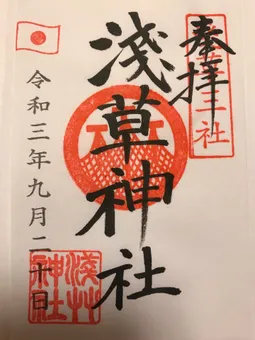 奉拝
三社
淺草神社
令和三年九月二十日
淺艸
神社